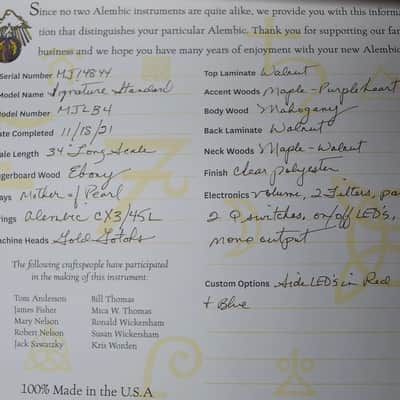 Since no two Alembic instruments are quite alike, we provide you with this informa
tion that distinguishes your particular Alembic. Thank you for supporting our fam
business and we hope you have many years of enjoyment with your new Alembic
Serial Number MJ14844
Model Name Signature Standard
Model Number MJLB4
ate Completed 11/18/21
ale Length 34" Long Scale
ngerboard Wood Ebony
ays Mother of Pearl
rings Alembic CX3/45L
achine Heads Gold Gotohs
Top Laminate Walnut
Accent Woods Maple - Purpleheart
Body Wood Mahogany
Back Laminate Walnut
Neck Woods Maple - Walnut
Finish Clear polyester
Electronics volume, 2 Filters, pa
2 Q switches, on/off LEDs,
mono output
Custom Options Side LEDs in Red
+ Blue
The following craftspeople have participated
in the making of this instrument.
Tom Anderson
James Fisher
Mary Nelson
Robert Nelson
Jack Sawatzky
Bill Thomas
Mica W. Thomas
Ronald Wickersham
Susan Wickersham
Kris Worden
100% Made in the U.S.A